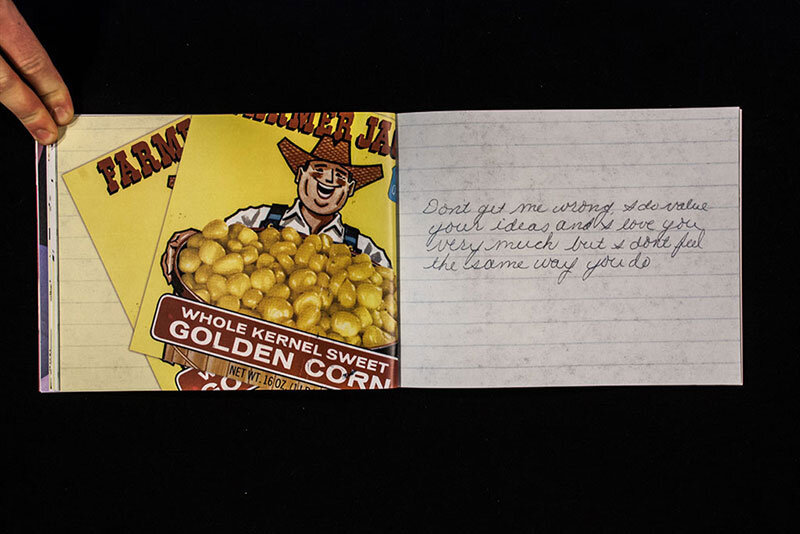 FARME
FARMER JAC
WHOLE KERNEL SWEET
GOLDEN CORN
NET WT. 16 OZ.
Dont get me wrong, I do value
your ideas and I love you
very much but I dont feel
the same way you do